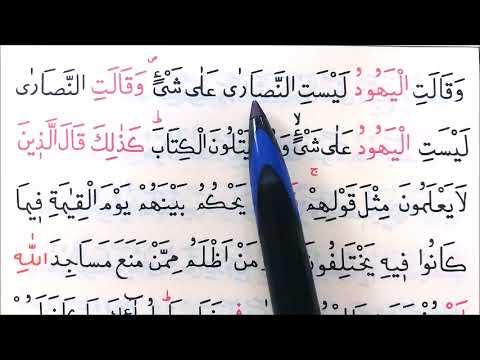 وَقَالَتِ الْيَهُودُ لَيْسَتِ النَّصَارٰى عَلٰى شَيْءٍۖ وَقَالَتِ النَّصَارٰى
لَيْسَتِ الْيَهُودُ عَلٰى شَيْءٍۙ يَتْلُونَ الْكِتَابَۜ كَذٰلِكَ قَالَ الَّذ۪ينَ
لَا يَعْلَمُونَ مِثْلَ قَوْلِهِمْۚ يَحْكُمُ بَيْنَهُمْ يَوْمَ الْقِيٰمَةِ ف۪يمَا
كَانُوا ف۪يهِ مَنْ اَظْلَمُ مِمَّنْ مَنَعَ مَسَاجِدَ اللّٰهِ